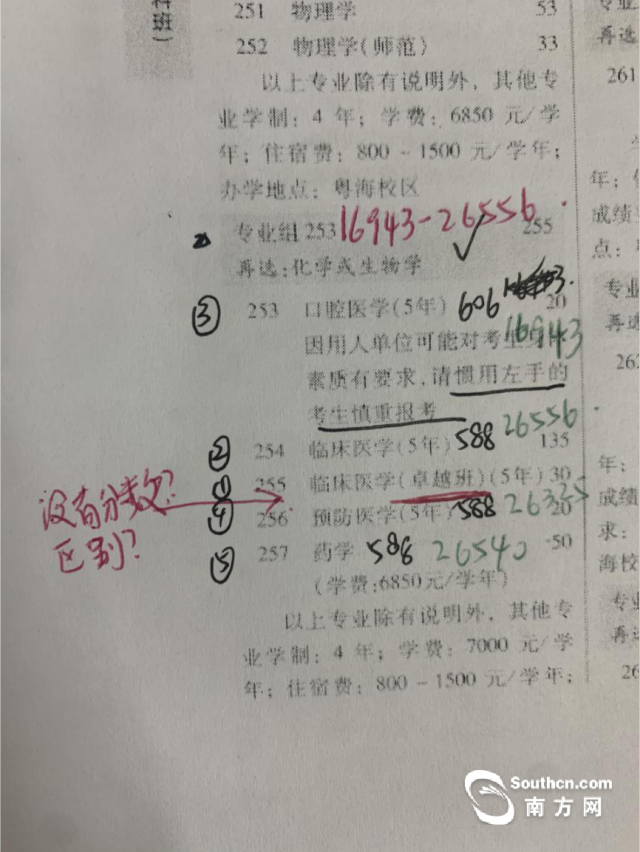 科班）
251 物理学 53
252 物理学(师范) 33
以上专业除有说明外，其他专
业学制：4 年；学费：6850 元/学
年；住宿费：800-1500 元/学年；
办学地点：粤海校区
专业组 253 16943-26556 255
再选:化学或生物学
③ 253 口腔医学(5年) 606 20
因用人单位可能对考生 16943
素质有要求，请惯用左手的
考生慎重报考
② 254 临床医学(5年) 588 26556 135
① 255 临床医学(卓越班)(5年) 30
没有分数？
区别？
④ 256 预防医学(5年) 588 20
⑤ 257 药学 588 26540 50
(学费:6850元/学年)
以上专业除有说明外，其他专
业学制：4 年；学费：7000 元/学
年；住宿费：800-1500 元/学年；
专业
再选
261
年；
成绩
点：
专业
再选
262
年；
成绩
求：
海校
专业
再选
26
Southcn.com
南方网